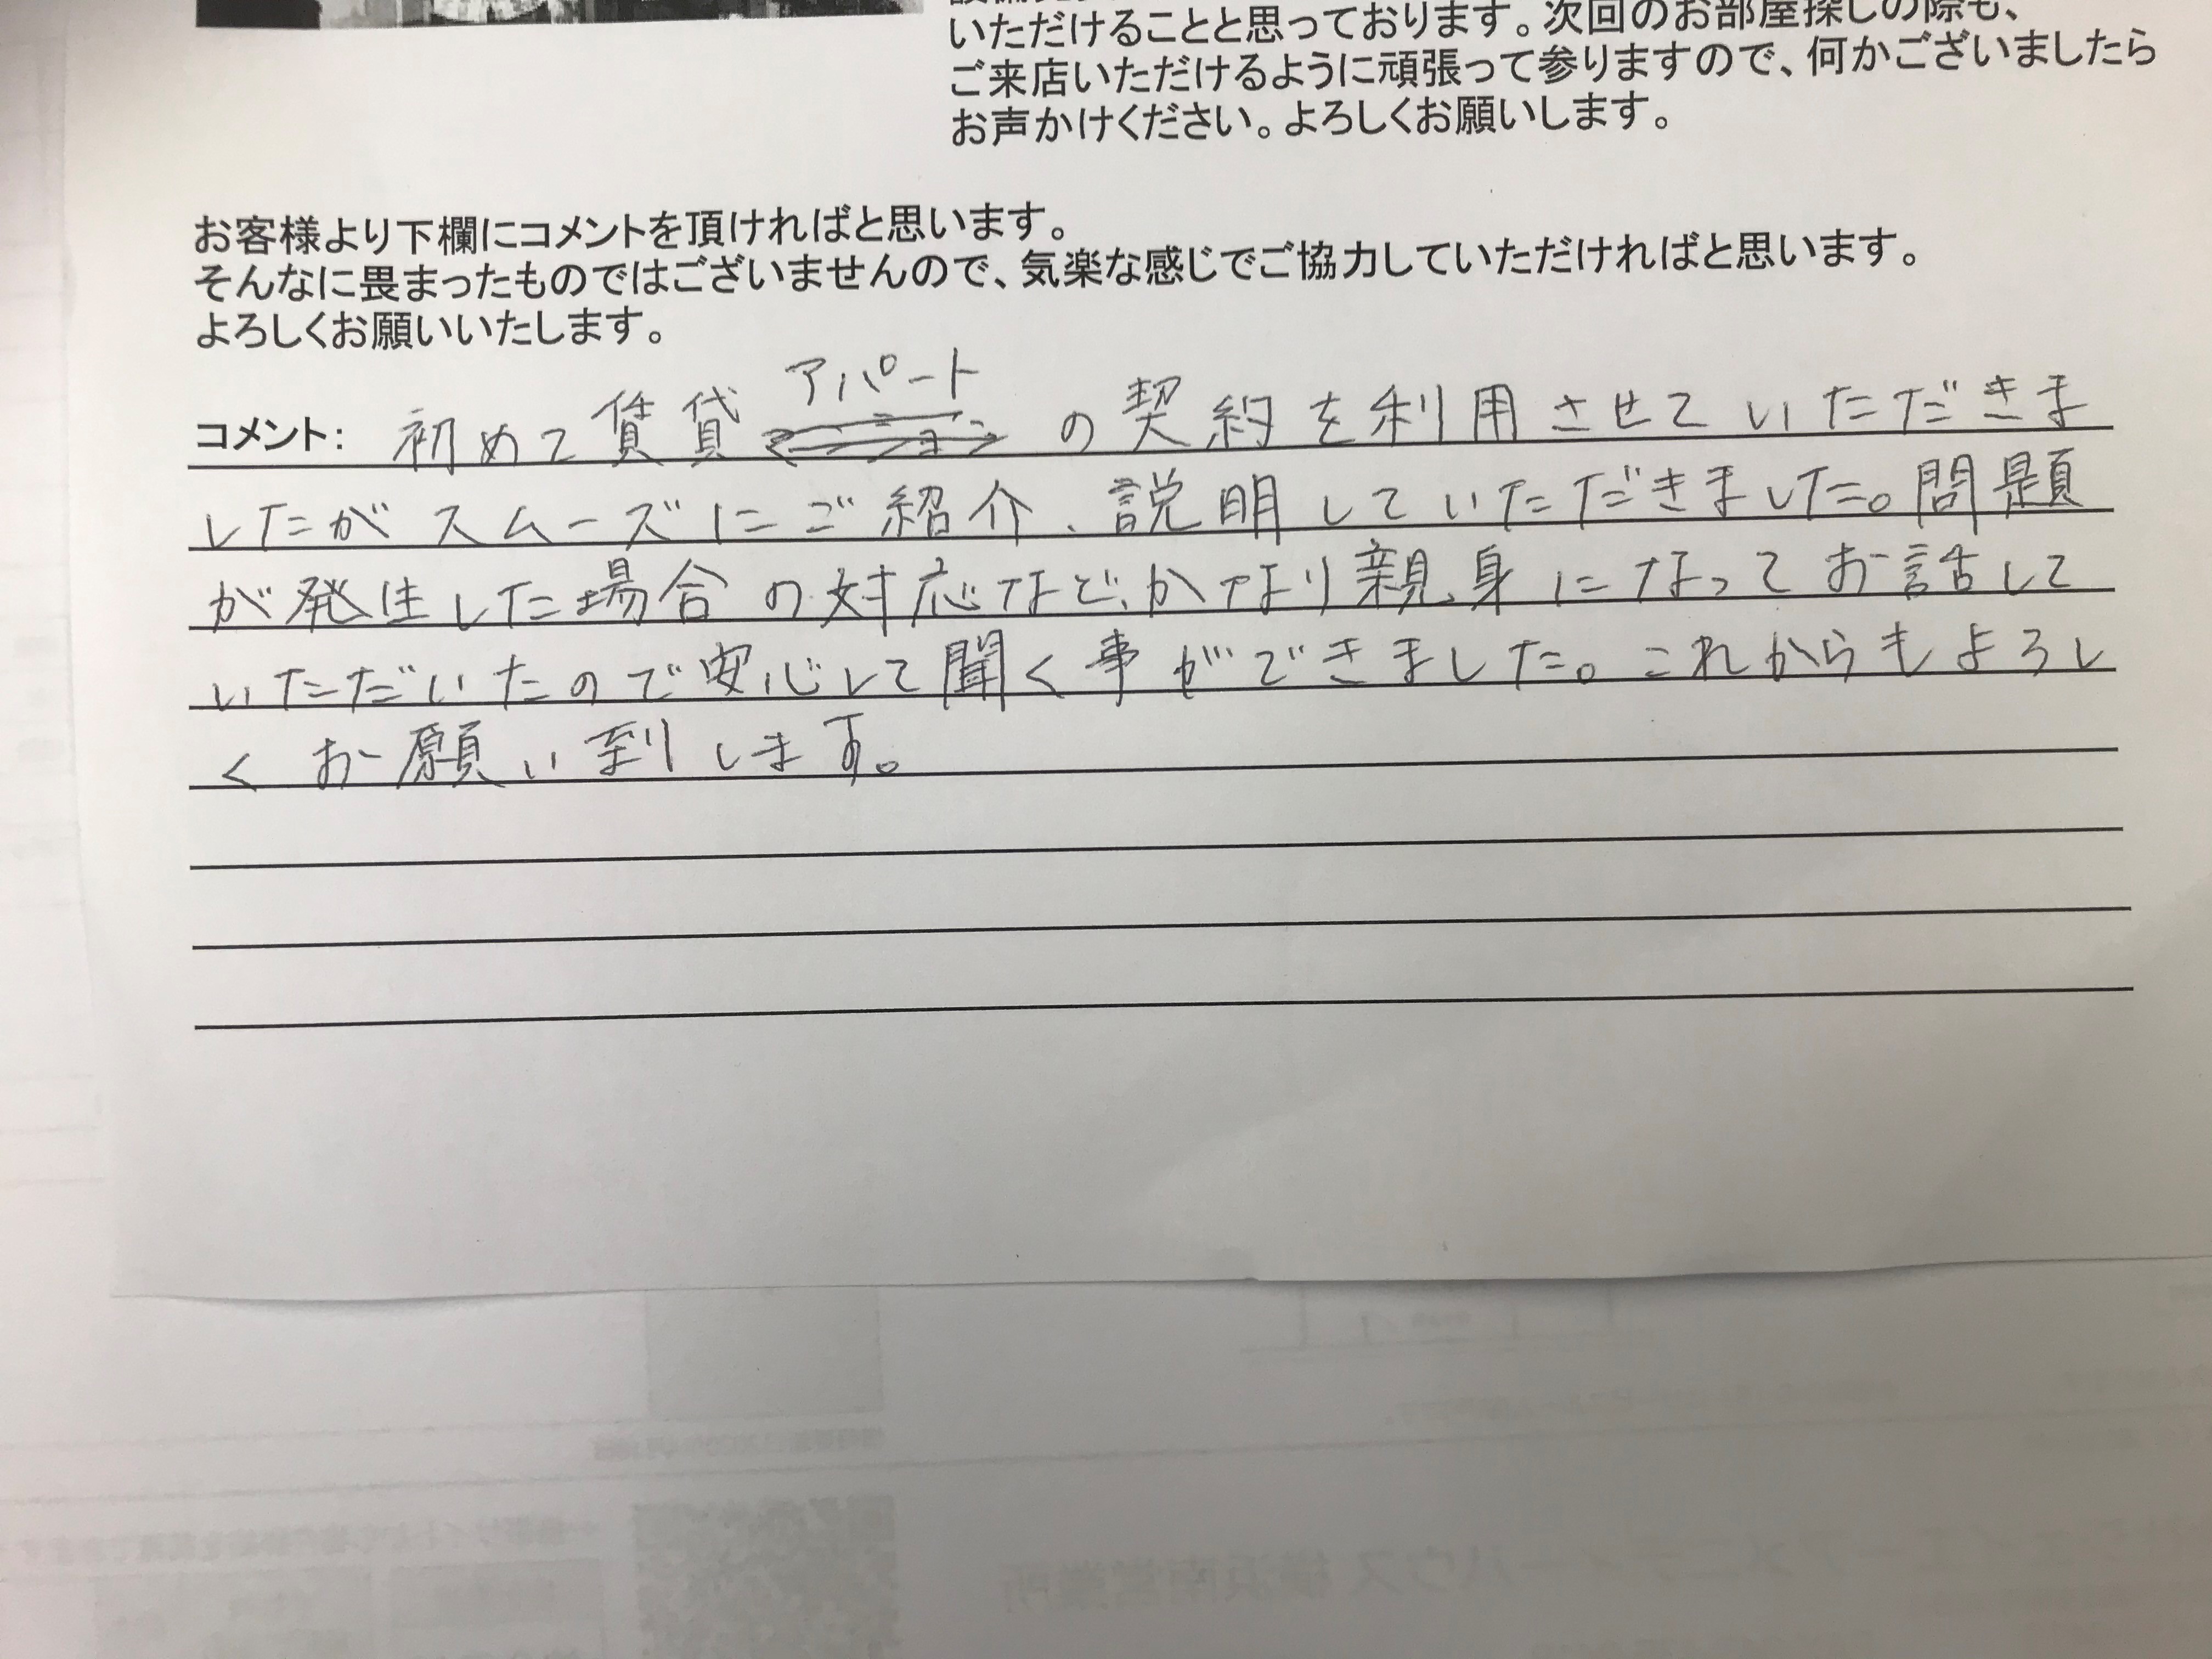 いただけることと思っております。次回のお部屋探しの際も、
ご来店いただけるように頑張って参りますので、何かございましたら
お声かけください。よろしくお願いします。
お客様より下欄にコメントを頂ければと思います。
そんなに畏まったものではございませんので、気楽な感じでご協力していただければと思います。
よろしくお願いいたします。
アパート
コメント： 初めて賃貸 の契約を利用させていただきま
したがスムーズにご紹介、説明していただきました。問題
が発生した場合の対応など、かなり親身になってお話して
いただいたので安心して聞く事ができました。これからもよろし
くお願い到します。